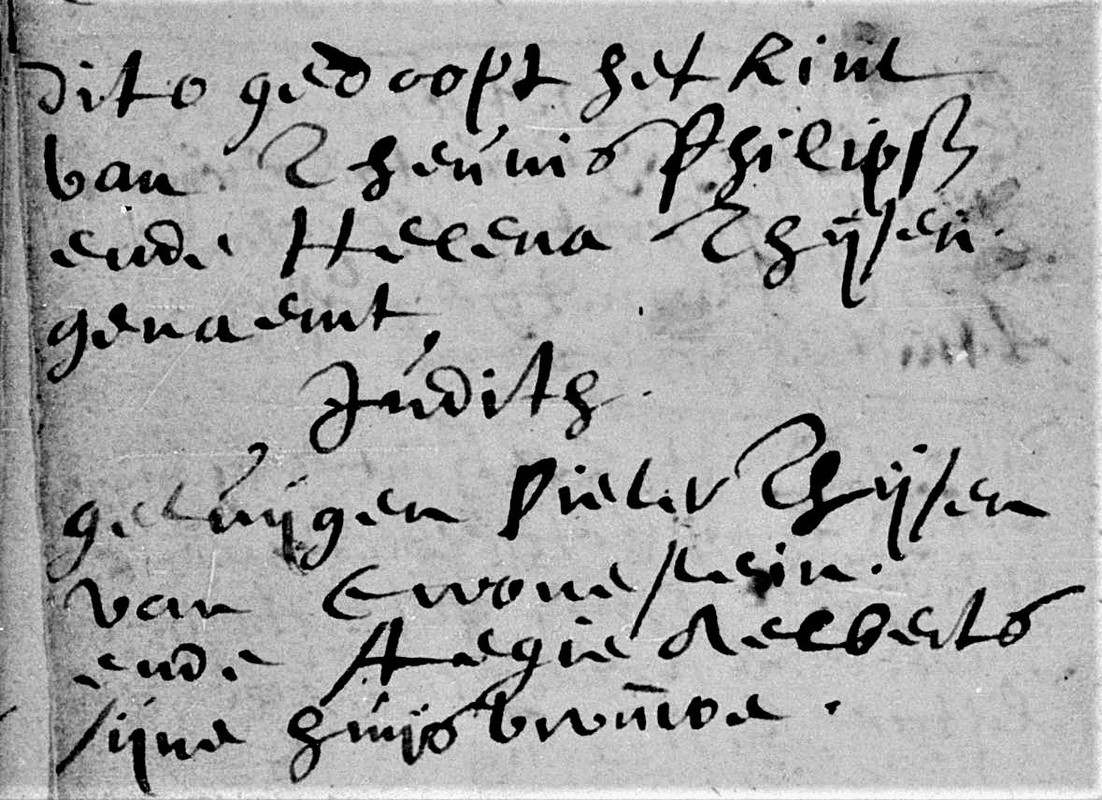 dito gedoopt het kint
van Theunis Philipss
ende Helena Thijsen
genaemt
Judith.
getuijgen Pieter Thijsen
van Cronestein.
ende Aegie
sijne huijsvrouwe.